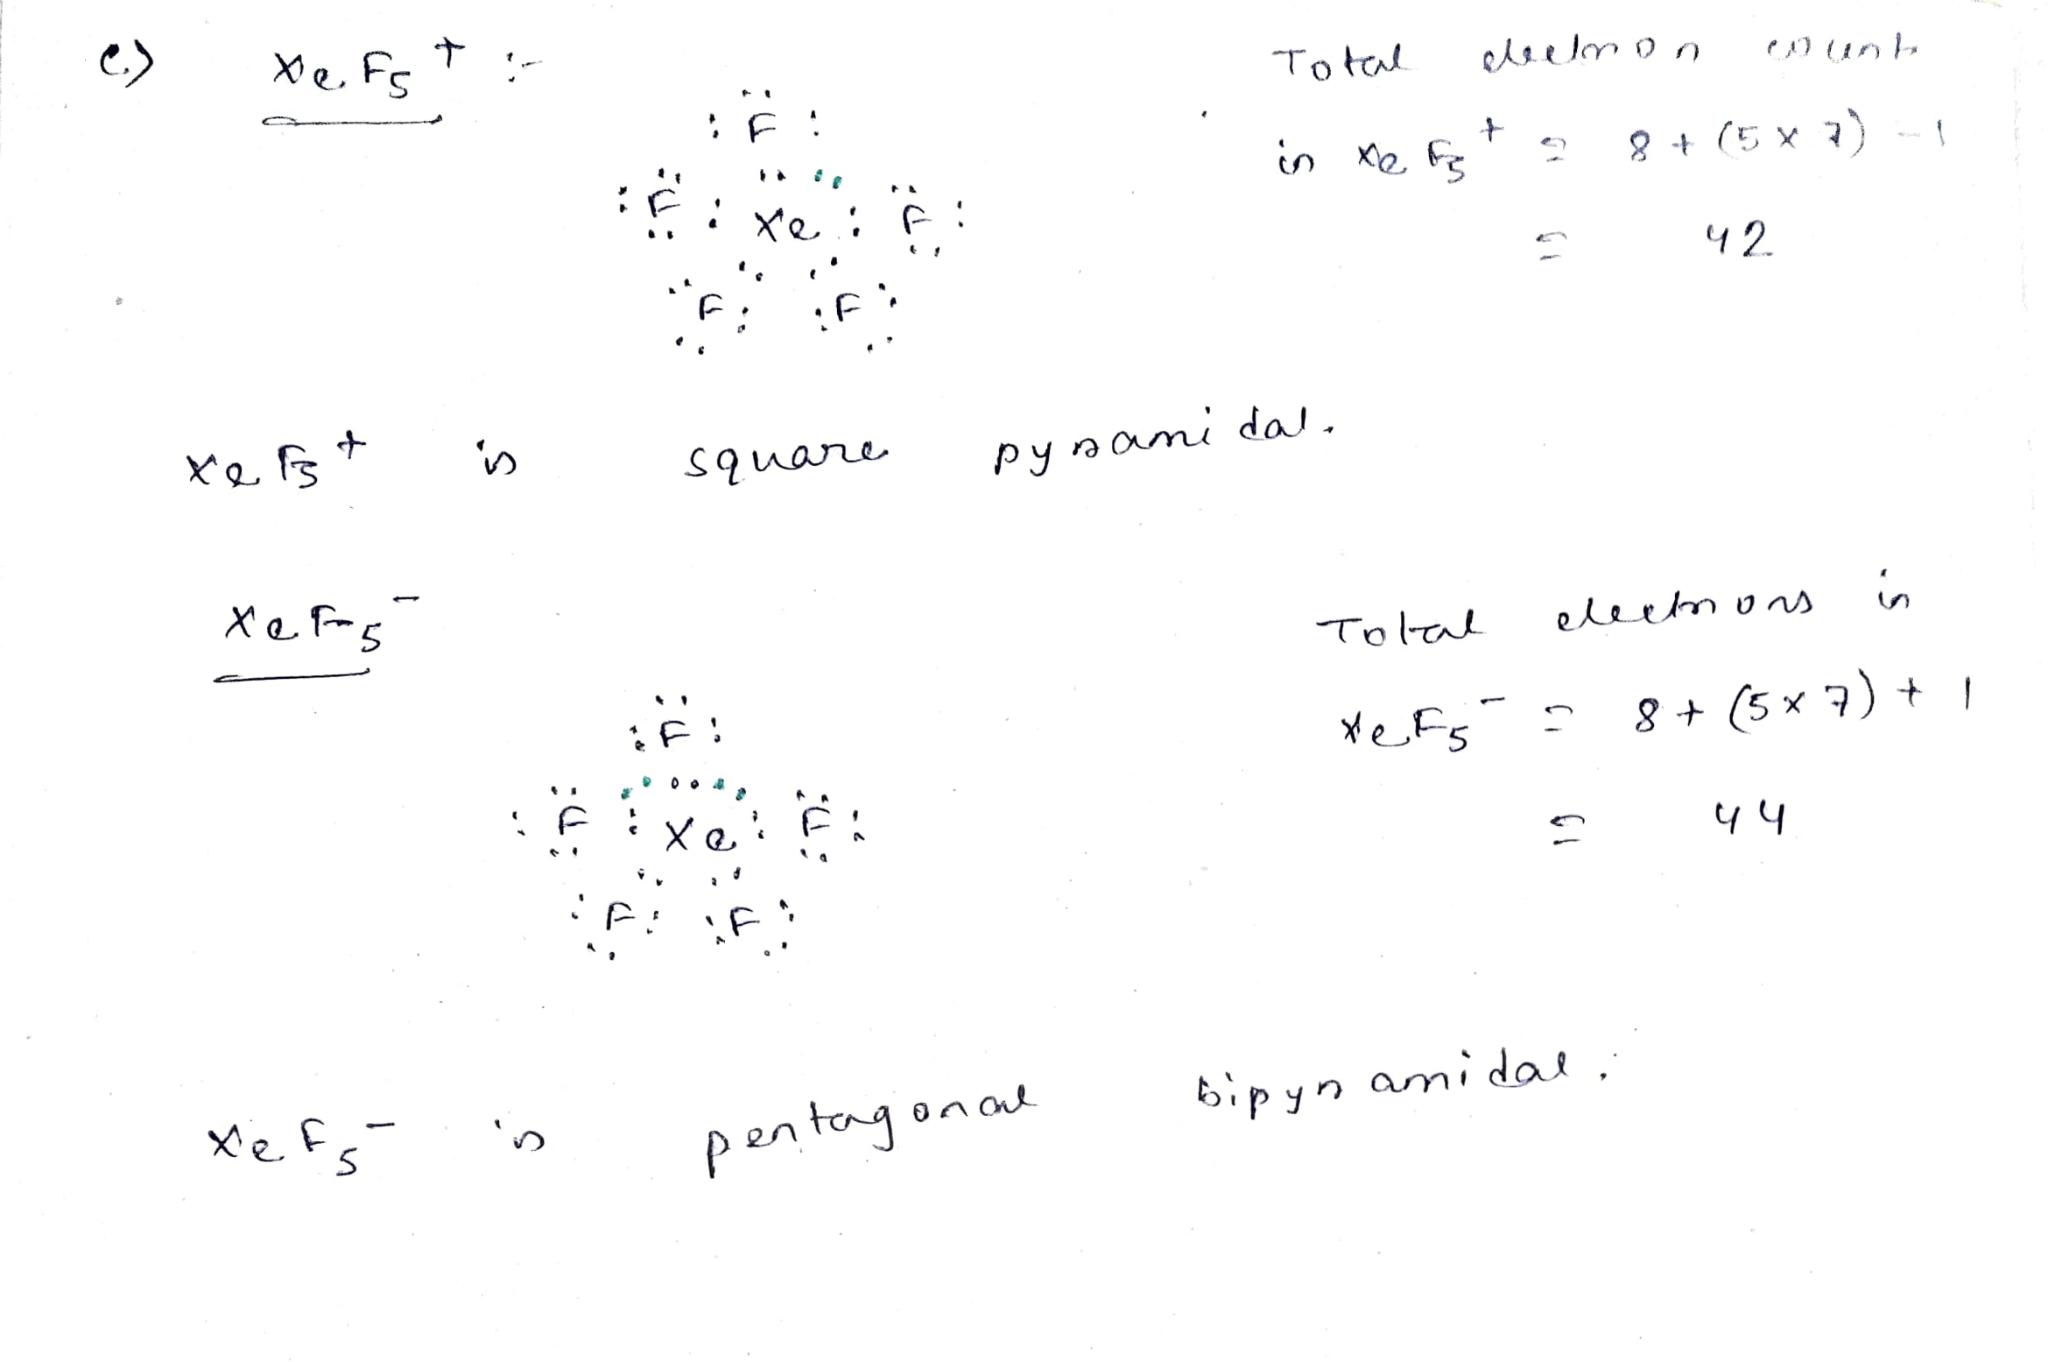 e.) XeF5+ :-
Total electron count
in XeF5+ = 8 + (5 x 7) - 1
= 42
:F:
:F: Xe : F:
F: :F:
XeF5+ is square pyramidal.
XeF5-
Total electrons in
XeF5- = 8 + (5 x 7) + 1
= 44
:F:
:F : Xe : F:
:F: :F:
XeF5- is pentagonal bipyramidal.